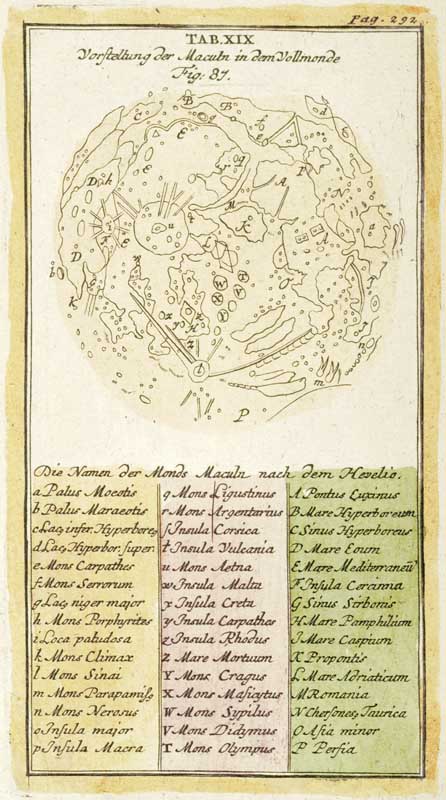 Pag. 292
TAB. XIX
Vorstellung der Maculn in dem Vollmonde
Fig: 87.
Die Namen der Monds Maculn nach dem Hevelio.
a Palus Moeotis
b Palus Maraeotis
c Lac, infer. Hyperbore,
d Lac, Hyperbor. super.
e Mons Carpathes
f Mons Serrorum
g Lac, niger major
h Mons Porphyrites
i Loca paludosa
k Mons Climax
l Mons Sinai
m Mons Parapamiss,
n Mons Nerosus
o Insula major
p Insula Macra
q Mons Ligustinus
r Mons Argentarius
ſ Insula Corsica
t Insula Vulcania
u Mons Aetna
w Insula Malta
x Insula Creta
y Insula Carpathos
z Insula Rhodus
Z Mare Mortuum
Y Mons Cragus
X Mons Masicytus
W Mons Sypilus
V Mons Didymus
T Mons Olympus
A Pontus Euxinus
B Mare Hyperboreum
C Sinus Hyperboreus
D Mare Eoum
E Mare Mediterraneū
F Insula Cercinna
G Sinus Sirbonis
H Mare Pamphilium
I Mare Caspium
K Propontis
L Mare Adriaticum
M Romania
N Chersones, Taurica
O Asia minor
P Persia